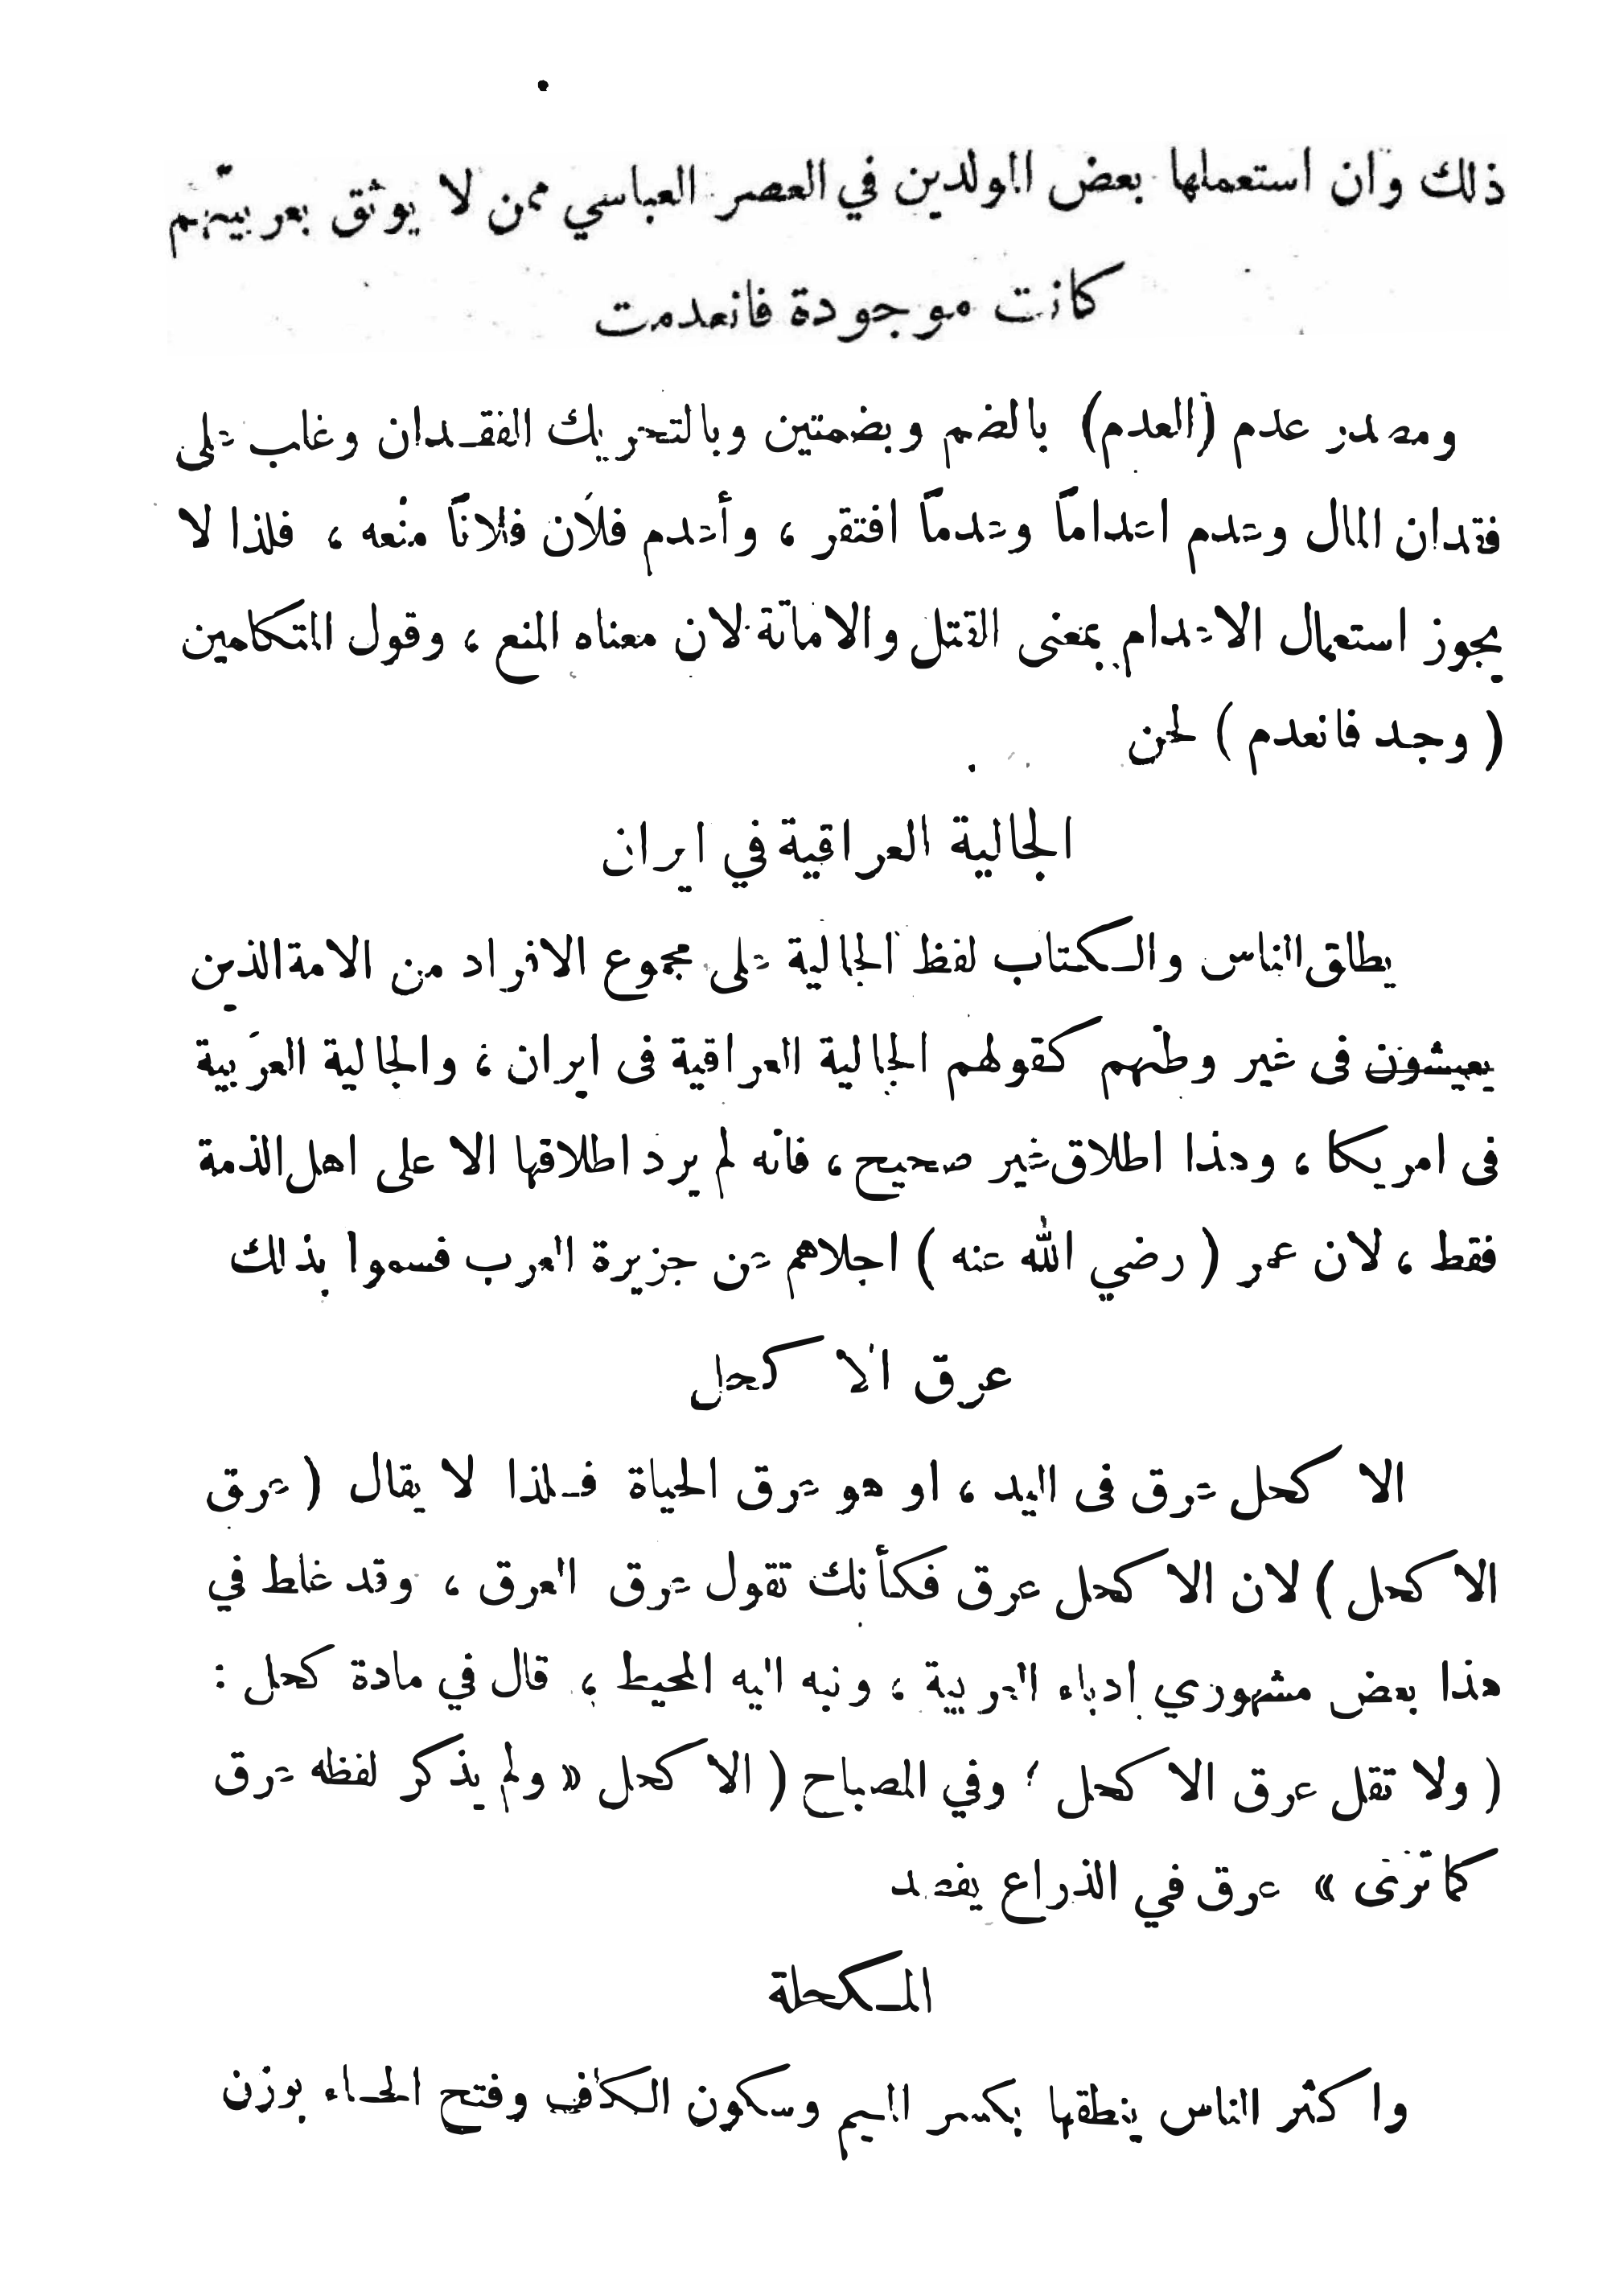 ذلك وان استعملها بعض المولدين في العصر العباسي ممن لا يوثق بعربيتهم
كانت موجودة فانعدمت
ومصدر عدم (العدم) بالضم وبضمتين وبالتحريك الفقدان وغلب على
فقدان المال وعدم اعداماً وعدماً افتقر ، وأعدم فلان فلاناً منعه ، فلذا لا
يجوز استعمال الاعدام بمعنى القتل والاماتة لان معناه المنع ، وقول المتكلمين
( وجد فانعدم ) لحن
الجالية العراقية في ايران
يطلق الناس والكتاب لفظ الجالية على مجموع الافراد من الامة الذين
يعيشون فى غير وطنهم كقولهم الجالية العراقية فى ايران ، والجالية العربية
فى امريكا ، وهذا اطلاق غير صحيح ، فانه لم يرد اطلاقها الا على اهل الذمة
فقط ، لان عمر ( رضي الله عنه ) اجلاهم عن جزيرة العرب فسموا بذلك
عرق الاكحل
الاكحل عرق فى اليد ، او هو عرق الحياة فلذا لا يقال ( عرق
الاكحل ) لان الاكحل عرق فكأنك تقول عرق العرق ، وقد غلط في
هذا بعض مشهوري ادباء العربية ، ونبه اليه المحيط ، قال في مادة كحل :
( ولا تقل عرق الاكحل ؛ وفي المصباح ( الاكحل « ولم يذكر لفظه عرق
كما ترى » عرق في الذراع يفصد
المكحلة
واكثر الناس ينطقها بكسر الميم وسكون الكاف وفتح الحاء بوزن